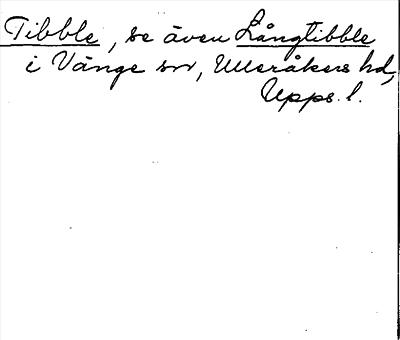 Tibble, se även Långtibble
i Vänge sn, Ulleråkers hd,
Upps. l.